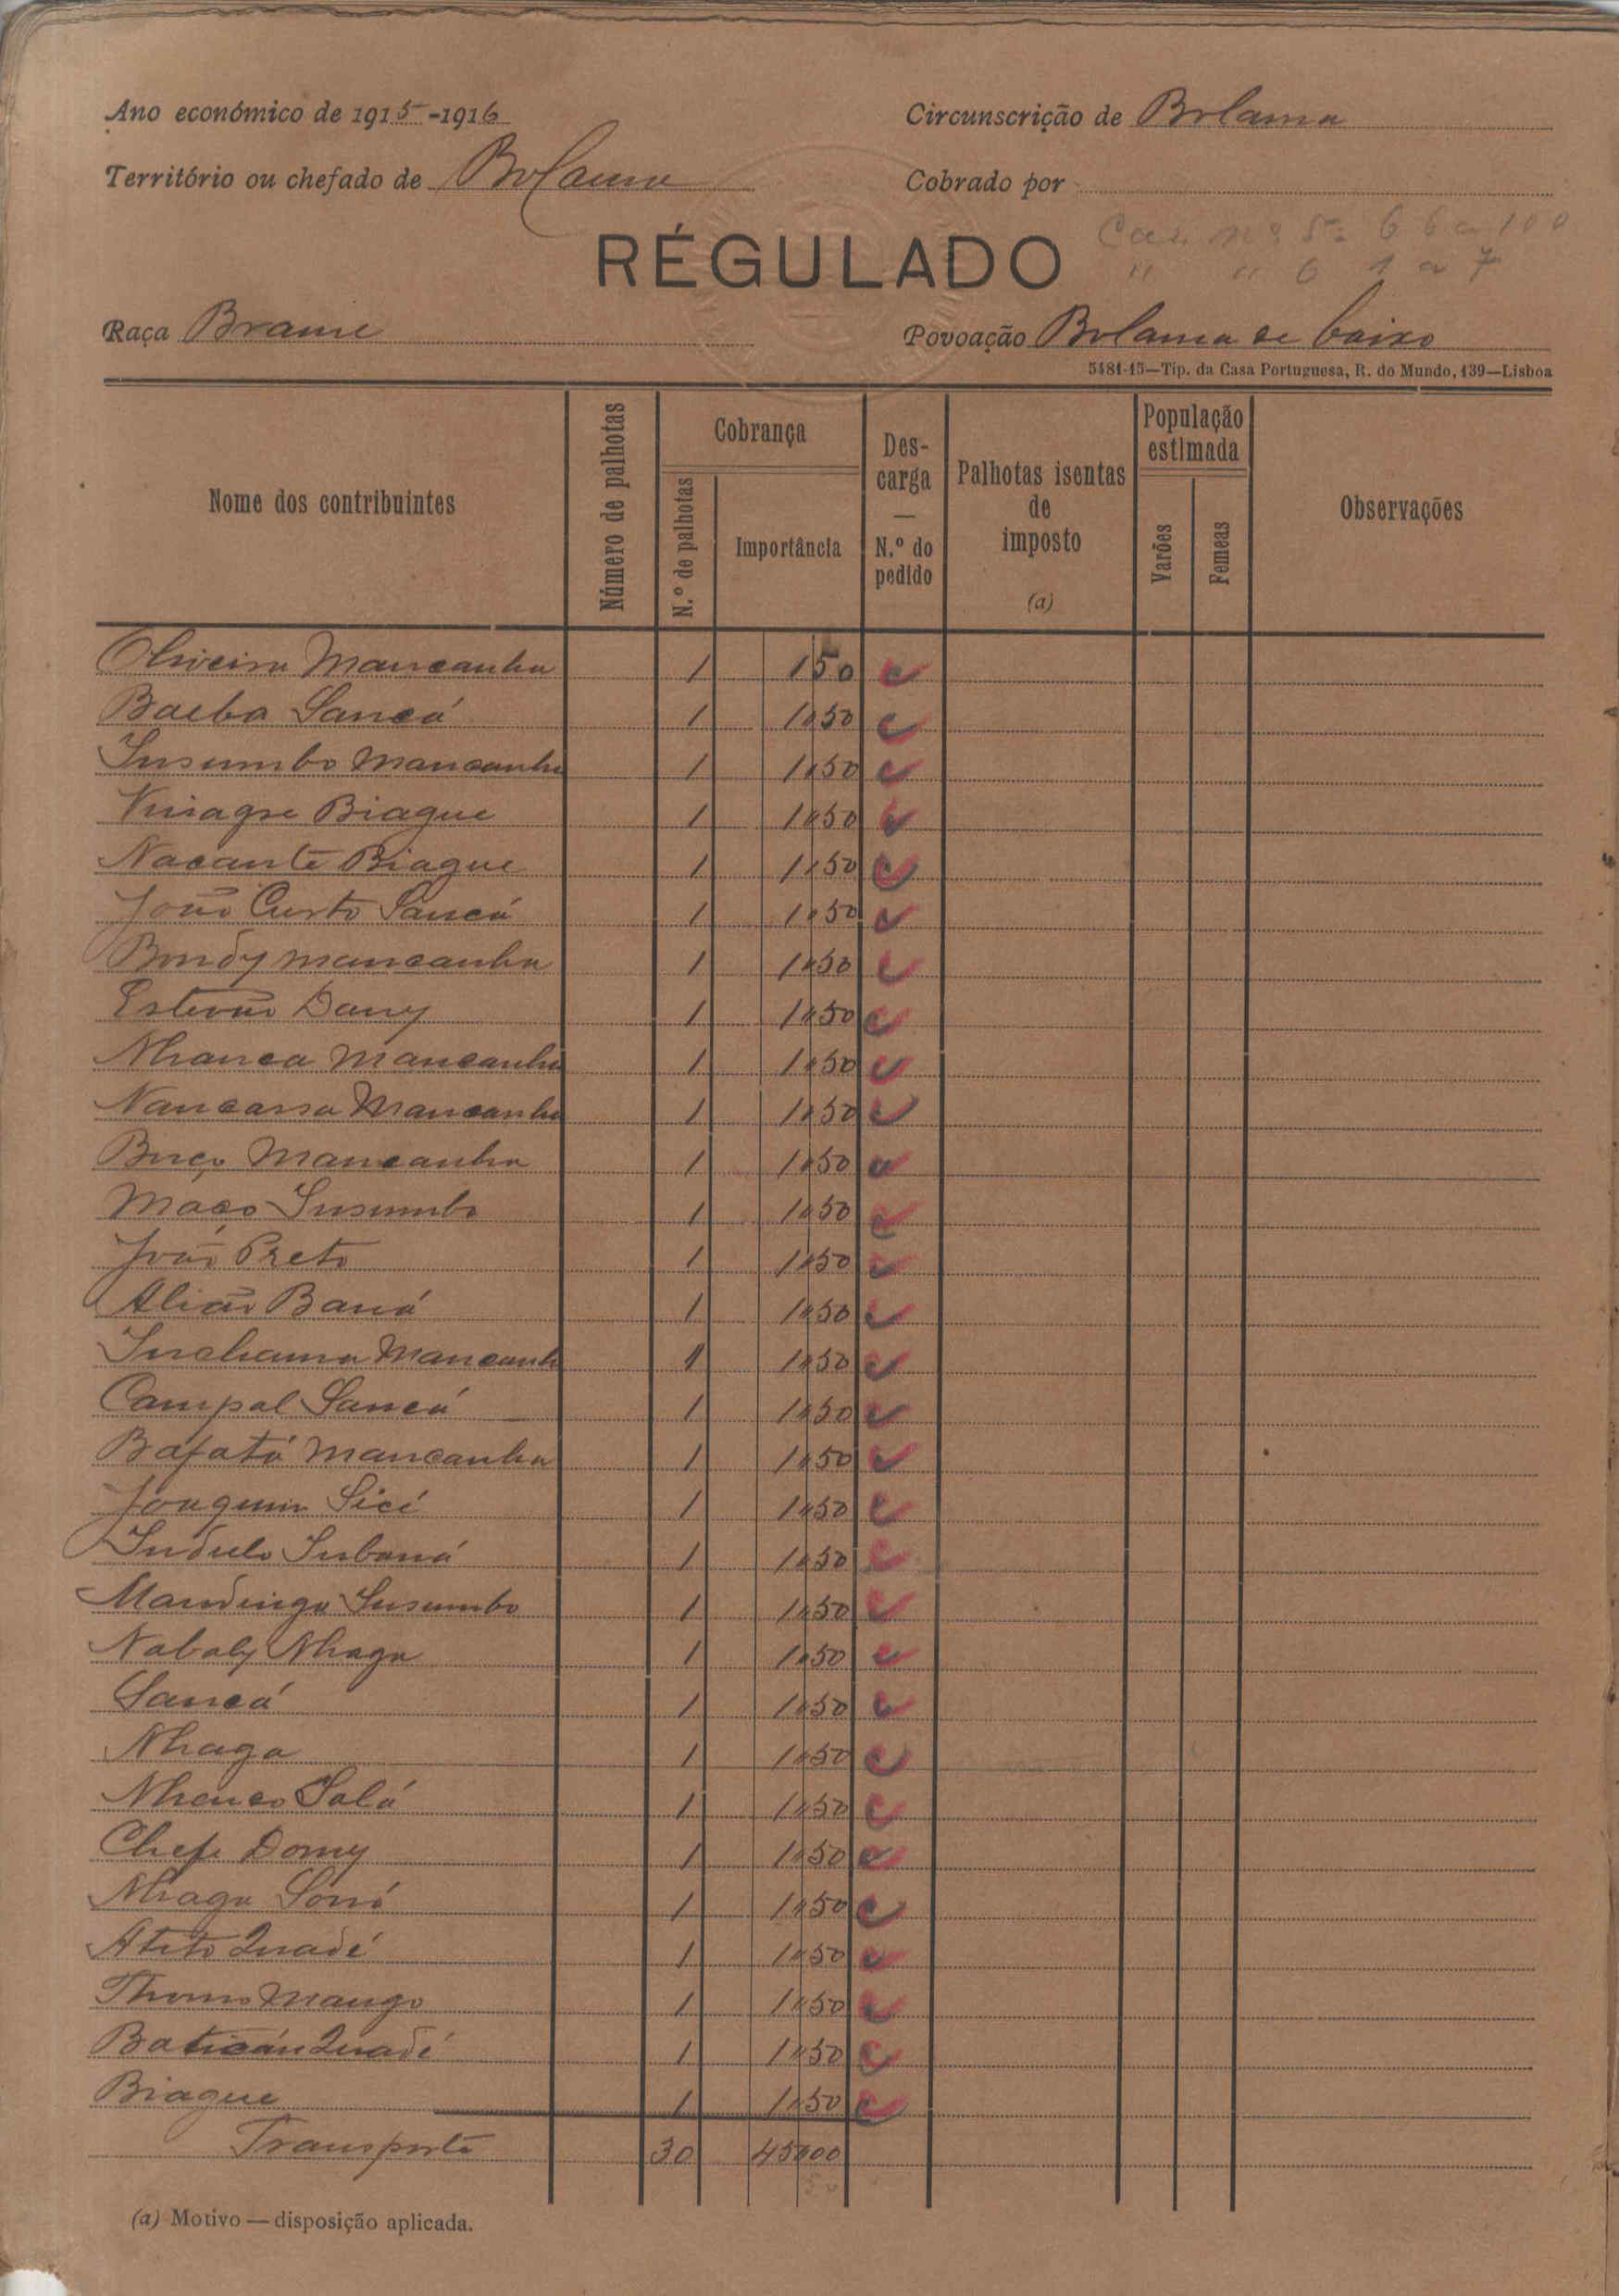 Ano económico de 1915-1916
Circunscrição de Bolama
Território ou chefado de Bolama
Cobrado por
RÉGULADO
Cad. nº 5: 66 a 100
" " 6 1 a 7
Raça Brame
Povoação Bolama de baixo
5481-15—Tip. da Casa Portuguesa, R. do Mundo, 139—Lisboa
Nome dos contribuintes
Número de palhotas
Cobrança
N.º de palhotas
Importância
Descarga — N.º do pedido
Palhotas isentas de imposto (a)
População estimada
Varões
Femeas
Observações
Oliveira Mancanha 1 150
Baeba Sancá 1 1$50
Insumbo Mancanha 1 1$50
Vinagre Biague 1 1$50
Nacante Biague 1 1$50
João Curto Sancá 1 1$50
Bondy Mancanha 1 1$50
Estevão Dany 1 1$50
Nhanca Mancanha 1 1$50
Nancassa Mancanha 1 1$50
Buço Mancanha 1 1$50
Maço Insumbo 1 1$50
João Preto 1 1$50
Alião Baná 1 1$50
Inchama Mancanh 1 1$50
Campal Sancá 1 1$50
Bafatá Mancanha 1 1$50
Joaquim Sicé 1 1$50
Indulo Inbaná 1 1$50
Mandinga Insumbo 1 1$50
Nabaly Nhaga 1 1$50
Sancá 1 1$50
Nhaga 1 1$50
Nhanco Salá 1 1$50
Chefe Domy 1 1$50
Nhaga Soná 1 1$50
Atito Quadé 1 1$50
Thomo Mango 1 1$50
Baticán Quadé 1 1$50
Biague 1 1$50
Transporte 30 45$00
(a) Motivo — disposição aplicada.